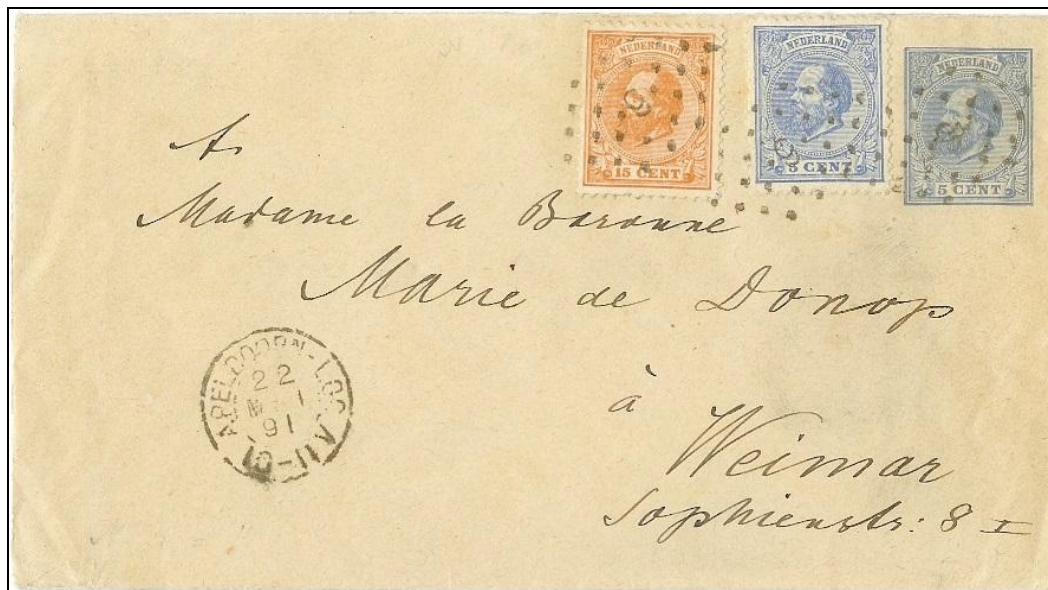 NEDERLAND
15 CENT
NEDERLAND
5 CENT
NEDERLAND
5 CENT
Madame la Baronne
Marie de Donop
à
Weimar
Sophienstr: 8 I
APELDOORN-LOO
22
91